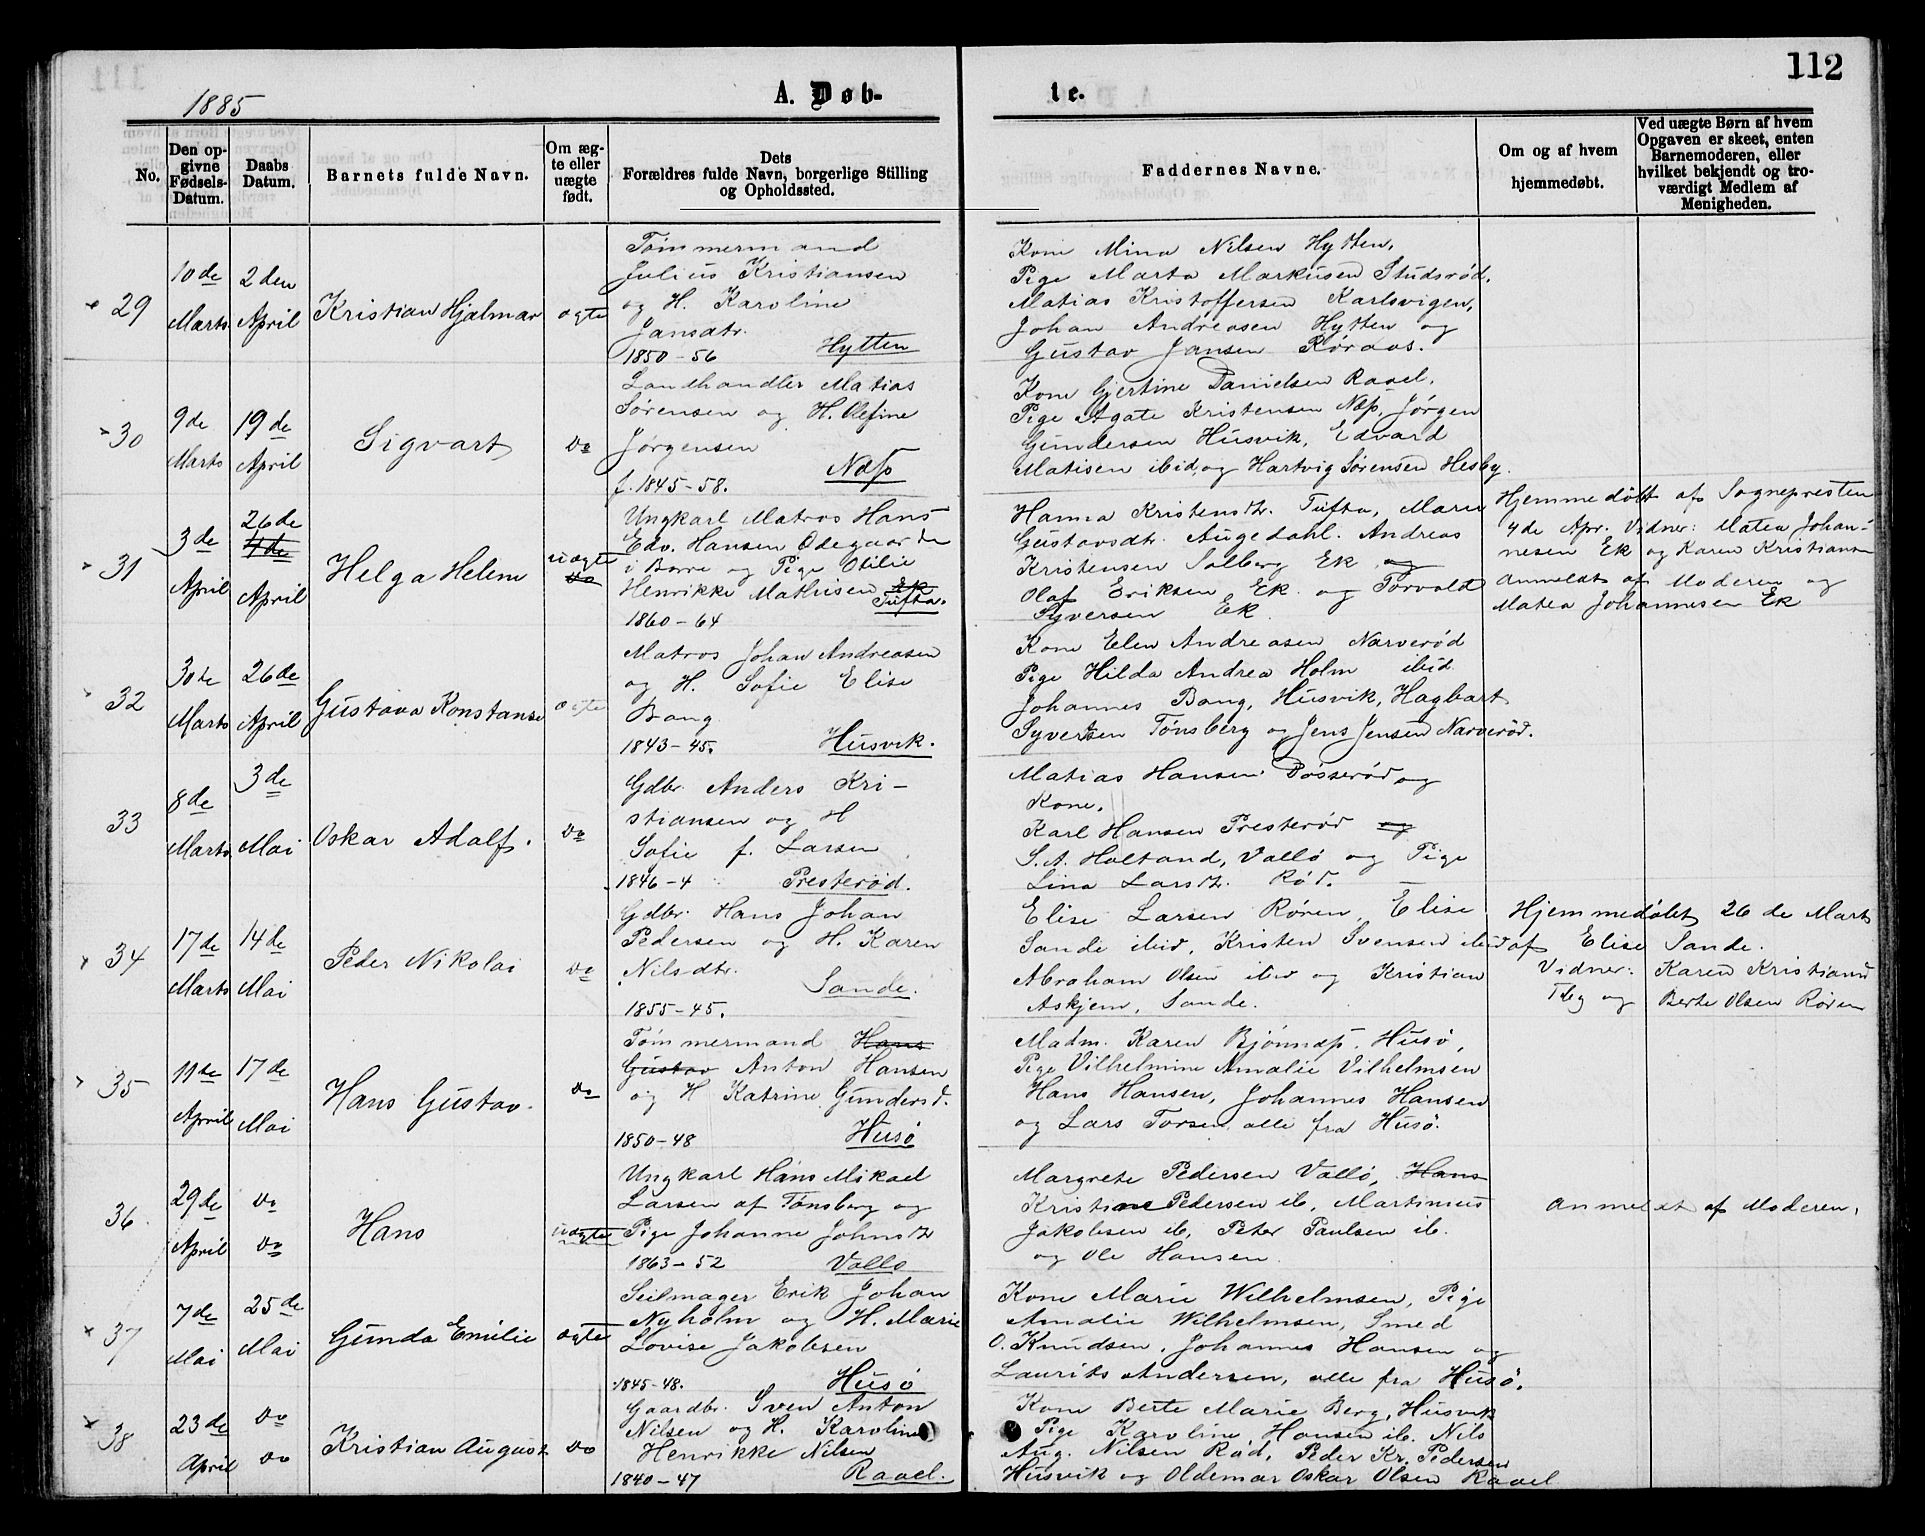 112
1885
A. Døb-
te.
No.
Den op-
givne
Fødsels-
Datum.
Daabs
Datum.
Barnets fulde Navn.
Om æg-
te eller
uægte
født.
Dets
Forældres fulde Navn, borgerlige Stilling
og Opholdssted.
Faddernes Navne.
Om og af hvem
hjemmedøbt.
Ved uægte Børn af hvem
Opgaven er skeet, enten
Barnemoderen, eller
hvilket bekjendt og tro-
værdigt Medlem af
Menigheden.
29
10de
Marts
2den
April
Kristian Hjalmar
ægte
Tømmermand
Julius Kristiansen
og H. Karoline
Jansdtr.
1850-56 Hytten
Kone Mina Nilsen Hytten,
Pige Marta Markusen Studsrød,
Matias Kristoffersen Karlsvigen,
Johan Andreasen Hytten og
Gustav Jansen Røraas.
30
9de
Marts
19de
April
Sigvart
do
Landhandler Matias
Sørensen og H. Olefine
Jørgensen
f. 1845-58. Næss
Kone Gjertine Danielsen Raael,
Pige Agate Kristensen Næs, Jørgen
Gundersen Husvik, Edvard
Matisen ibid, og Hartvig Sørensen Hesby.
31
3de
April
26de
4de
April
Helga Helene
uægte
do
Ungkarl Matros Hans
Edv. Hansen Ødegaarden
i Borre og Pige Otilie
Henrikke Mathisen Ek
Tufta.
1860-64
Hanna Kristensdtr. Tufta, Marie
Gustavsdtr. Augedahl. Andreas
Kristensen Solberg Ek og
Olaf Eriksen Ek og Torvald
Syversen Ek
Hjemmedøbt af Sognepresten
4de Apr. Vidner: Matea Johan-
nesen Ek og Karen Kristiansen
Anmeldt af Moderen og
Matea Johannesen Ek
32
30te
Marts
26de
April
Gustava Konstanse
ægte
Matros Johan Andreasen
og H. Sofie Elise
Bang
1843-45. Husvik.
Kone Elen Andreasen Narverød
Pige Hilda Andrea Holm ibid
Johannes Bang, Husvik, Hagbart
Syvertsen Tønsberg og Jens Jensen Narverød.
33
8de
Marts
3de
Mai
Oskar Adolf.
do
Gdbr. Anders Kri-
stiansen og H
Sofie f. Larsen
1846-4 Presterød.
Matias Hansen Døsserød og
Kone.
Karl Hansen Presterød og
S. A. Holtand, Vallø og Pige
Lina Larsdtr. Rød.
34
17de
Marts
14de
Mai
Peder Nikolai
do
Gdbr. Hans Johan
Pedersen og H. Karen
Nilsdtr.
Sande.
1855-45.
Elise Larsen Røren, Elise
Sande ibid, Kristen Svensen ibid
Abraham Olsen ibid og Kristian
Askjem, Sande.
Hjemmedøbt 26de Marts
af Elise Sande.
Vidner: Karen Kristians
og Berte Olsen Røren
35
11te
April
17de
Mai
Hans Gustav.
do
Tømmermand Hans
Gustav Anton Hansen
og H Katrine Gundersd.
1850-48 Husø
Madm. Karen Bjønnæs. Husø,
Pige Vilhelmine Amalie Vilhelmsen
Hans Hansen, Johannes Hansen
og Lars Torsen, alle fra Husø.
36
29de
April
do
do
Hans
uægte
Ungkarl Hans Mikael
Larsen af Tønsberg og
Pige Johanne Johnsdtr
1863-52 Vallø
Margrete Pedersen Vallø, Hans
Kristine Pedersen ib, Martinius
Jakobsen ib, Peter Paulsen ib.
og Ole Hansen
Anmeldt af Moderen.
37
7de
Mai
25de
Mai
Gunda Emilie
ægte
Seilmager Erik Johan
Nyholm og H. Marie
Lovise Jakobsen
1845-48. Husø
Kone Marie Wilhelmsen, Pige
Amalie Wilhelmsen, Smed
O. Knudsen, Johannes Hansen og
Laurits Andersen, alle fra Husø.
38
23de
April
do
do
Kristian August
do
Gaardbr. Sven Anton
Nilsen og H. Karoline
Henrikke Nilsen
1840-47 Raael.
Kone Berte Marie Berg, Husvik
Pige Karoline Hansen ib. Nils
Aug. Nilsen Rød, Peder Kr. Pedersen
Husvik og Oldemar Oskar Olsen Raael